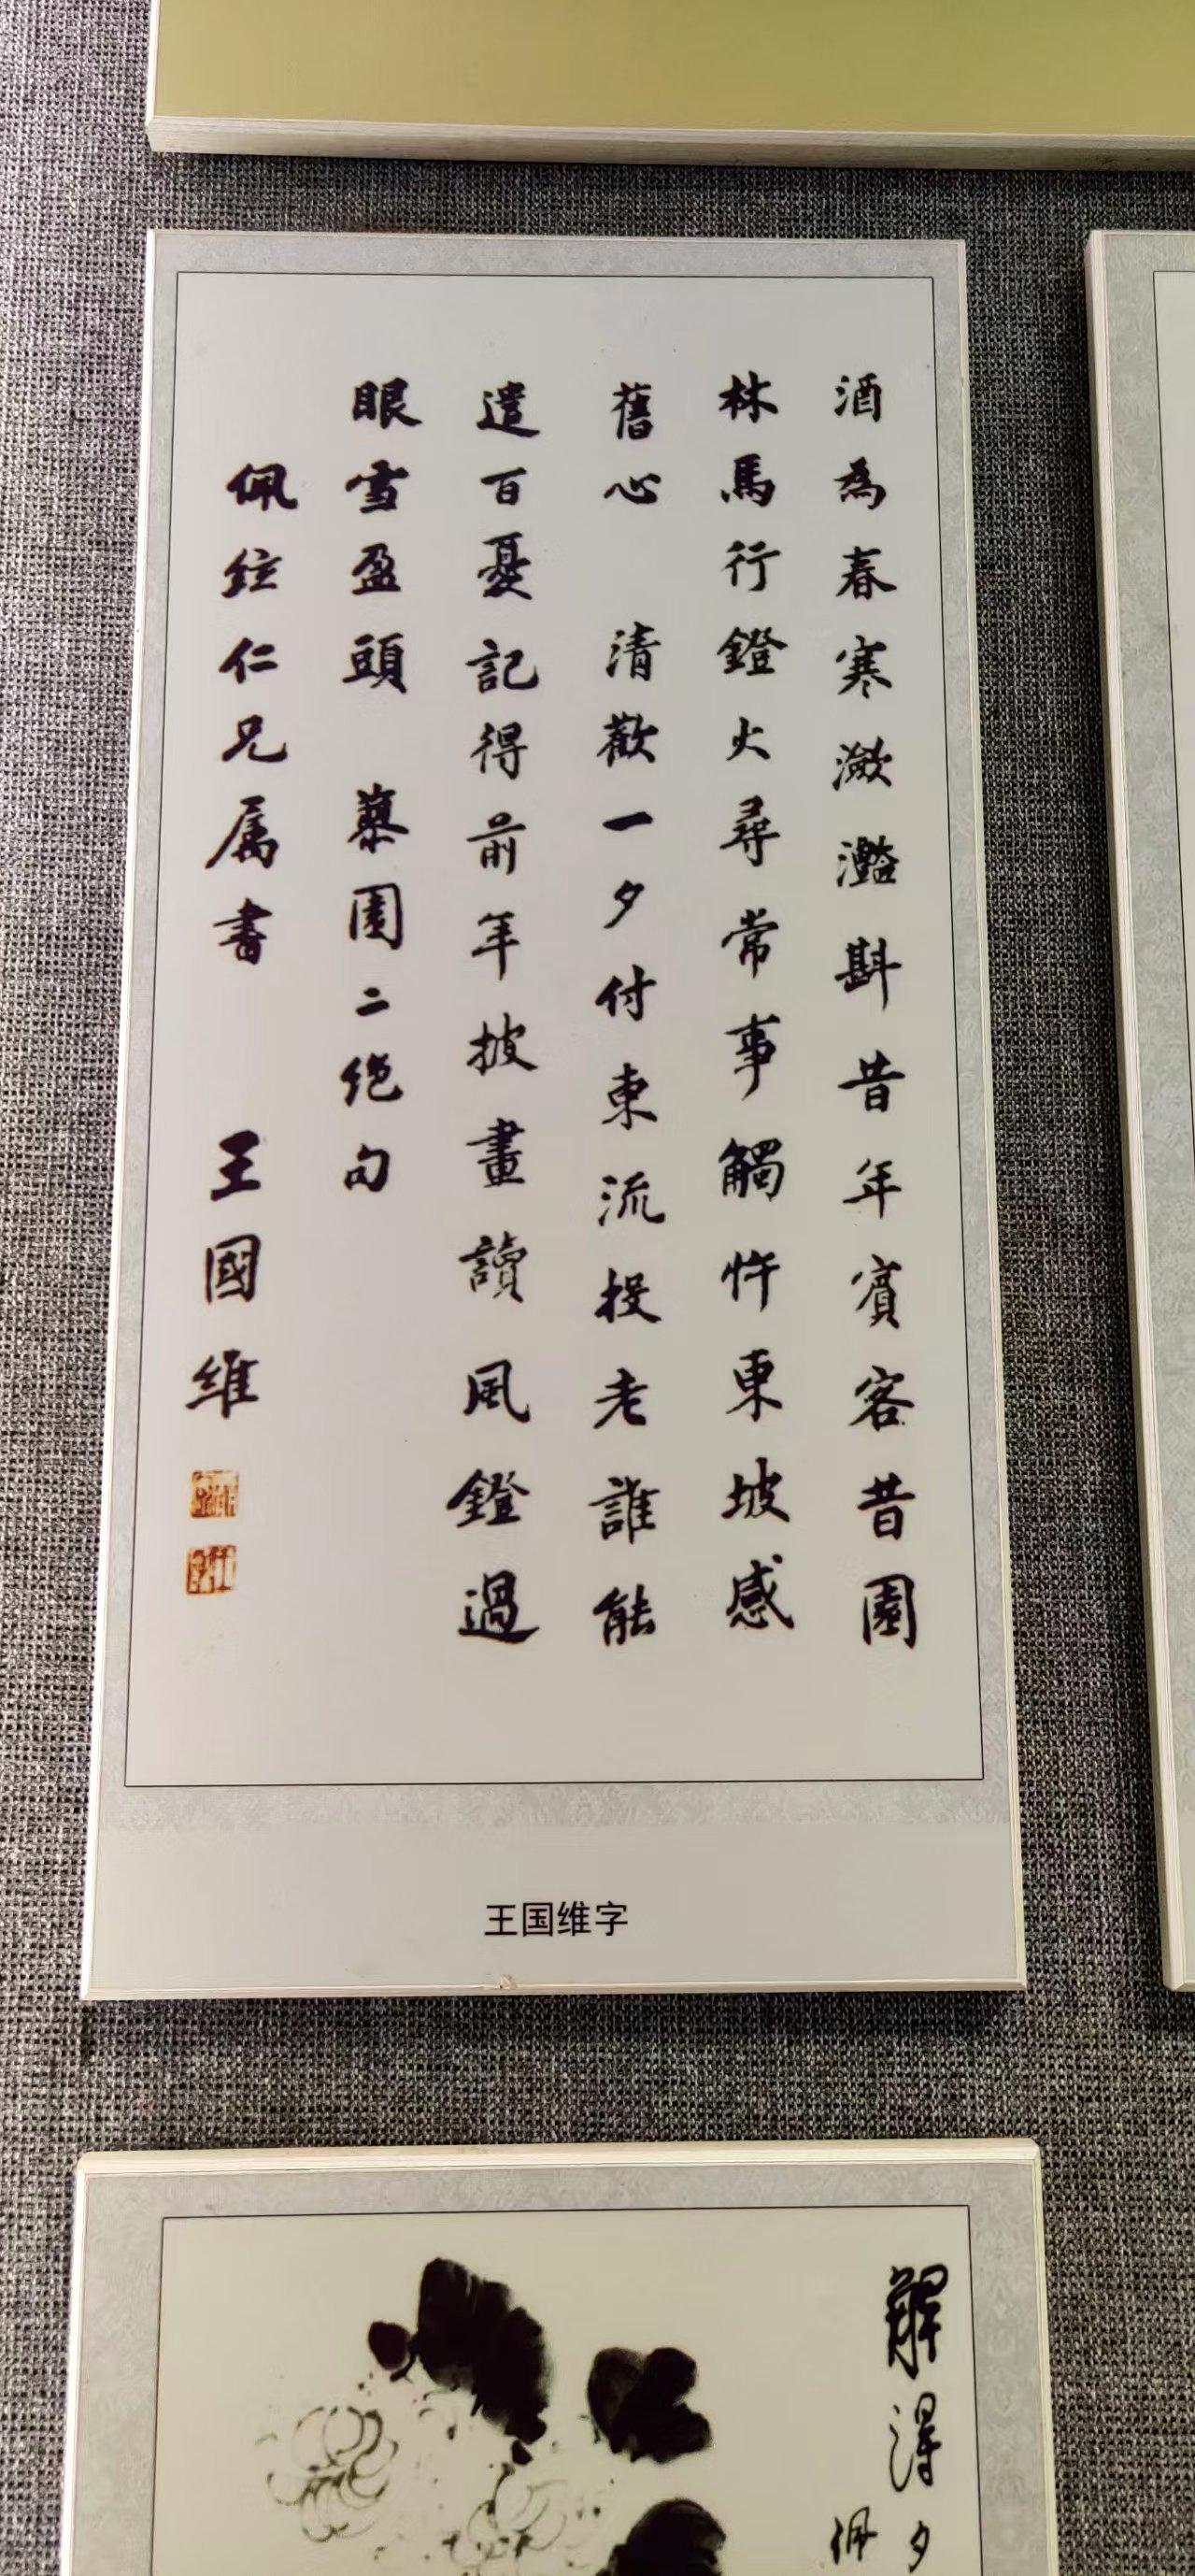 酒為春寒潋灔斟昔年賓客昔園
林馬行鐙火尋常事觸忤東坡感
舊心 清歡一夕付東流投老誰能
遣百憂記得前年披畫讀風鐙過
眼雪盈頭 摹園二绝句
佩鉉仁兄属書 王國維
王国维字
解得夕
佩